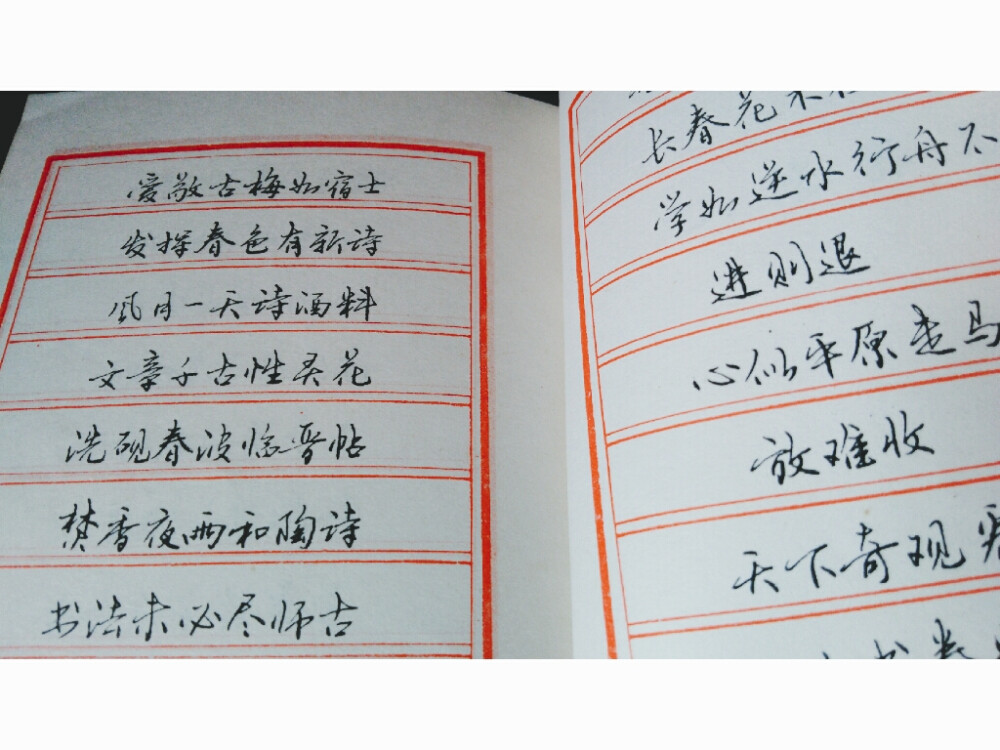 爱敬古梅如宿士
发挥春色有新诗
风月一天诗酒料
文章千古性灵花
洗砚春波临晋帖
焚香夜雨和陶诗
书法未必尽师古
长春花不
学如逆水行舟不
进则退
心似平原走马
放难收
天下奇观